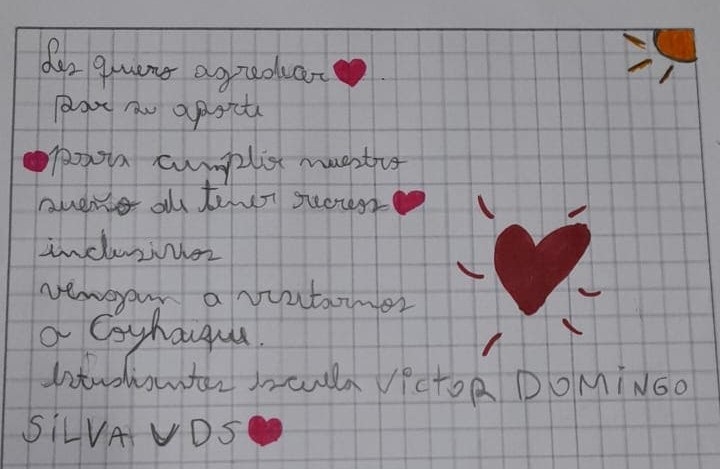 Les quiero agredecer
por su aporte
para cumplir nuestro
sueño de tener recreos
inclusivos
vengan a visitarnos
a Coyhaique.
Estudiantes Escuela VICTOR DOMINGO
SILVA VDS